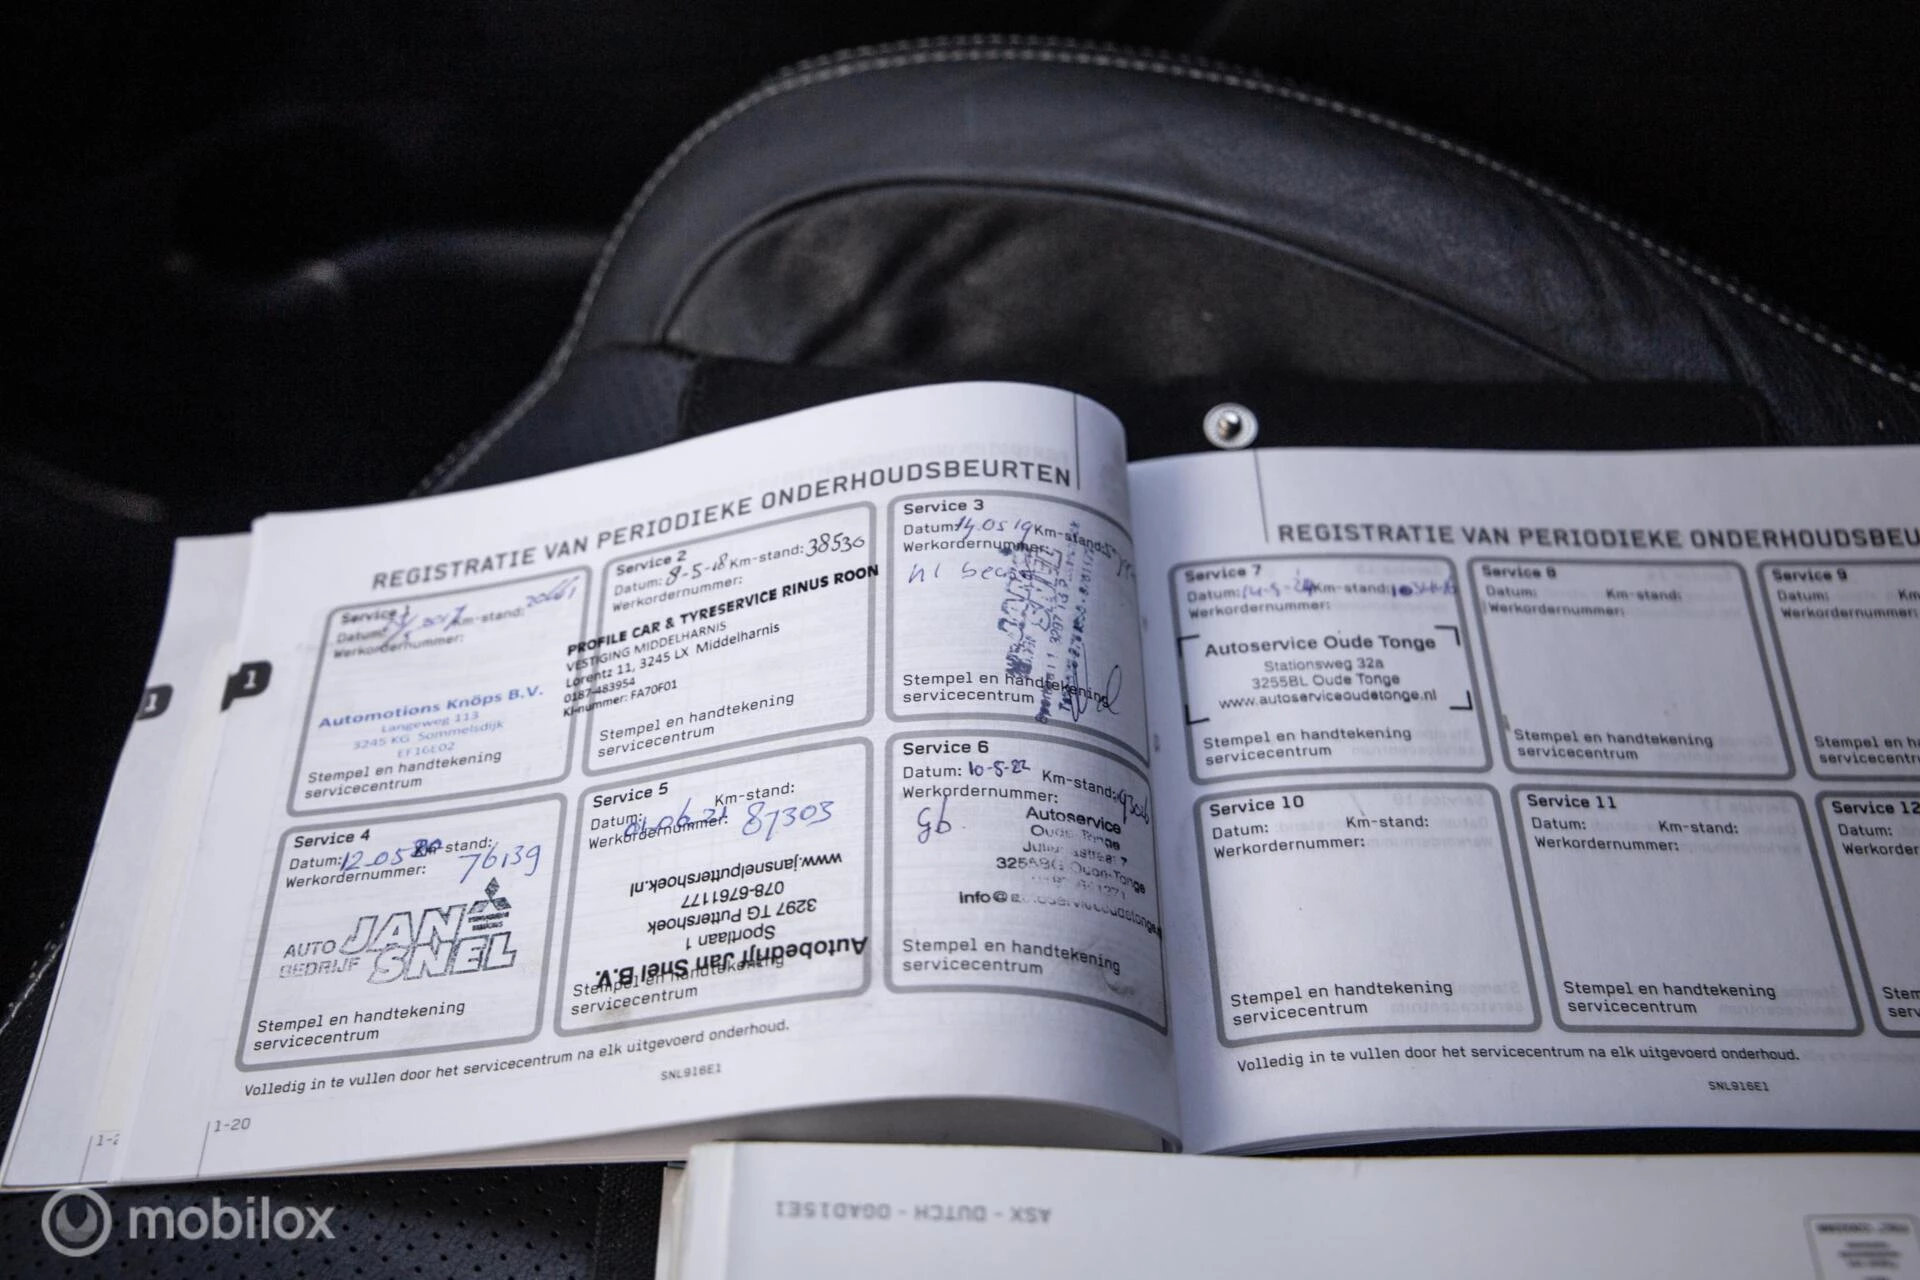 REGISTRATIE VAN PERIODIEKE ONDERHOUDSBEURTEN
Service 1
Datum: Km-stand:
Werkordernummer:
Automotions Knöps B.V.
Langeweg 113
3245 KG Sommelsdijk
EF16E02
Stempel en handtekening
servicecentrum
Service 2
Datum: 8-5-18 Km-stand: 38530
Werkordernummer:
PROFILE CAR & TYRESERVICE RINUS ROON
VESTIGING MIDDELHARNIS
Lorentz 11, 3245 LX Middelharnis
0187-483954
KI-nummer: FA70F01
Stempel en handtekening
servicecentrum
Service 3
Datum: 14.05 19 Km-stand:
Werkordernummer:
Stempel en handtekening
servicecentrum
Service 4
Datum: 12-05 Km-stand:
Werkordernummer: 76139
AUTO JAN
BEDRIJF SNEL
Stempel en handtekening
servicecentrum
Service 5
Km-stand:
Datum: 01.06.21 87303
Werkordernummer:
Autobedrijf Jan Snel B.V.
Sportlaan 1
3297 TG Puttershoek
078-6761177
www.jansnelputtershoek.nl
Stempel en handtekening
servicecentrum
Service 6
Datum: 10-5-22 Km-stand:
Werkordernummer:
gb
Autoservice
Oude Tonge
Oude-Tonge
Stempel en handtekening
servicecentrum
Volledig in te vullen door het servicecentrum na elk uitgevoerd onderhoud.
SNL916E1
1-20
1
1
REGISTRATIE VAN PERIODIEKE ONDERHOUDSBEU
Service 7
Datum: 14-5-24 Km-stand:
Werkordernummer:
Autoservice Oude Tonge
Stationsweg 32a
3255BL Oude Tonge
www.autoserviceoudetonge.nl
Stempel en handtekening
servicecentrum
Service 8
Datum: Km-stand:
Werkordernummer:
Stempel en handtekening
servicecentrum
Service 9
Datum: Km
Werkordernummer:
Stempel en h
servicecentr
Service 10
Datum: Km-stand:
Werkordernummer:
Stempel en handtekening
servicecentrum
Service 11
Datum: Km-stand:
Werkordernummer:
Stempel en handtekening
servicecentrum
Service 12
Datum:
Werkorder
Stem
serv
Volledig in te vullen door het servicecentrum na elk uitgevoerd onderhoud.
SNL916E1
ASX - DUTCH - OGAD15E1
mobilox